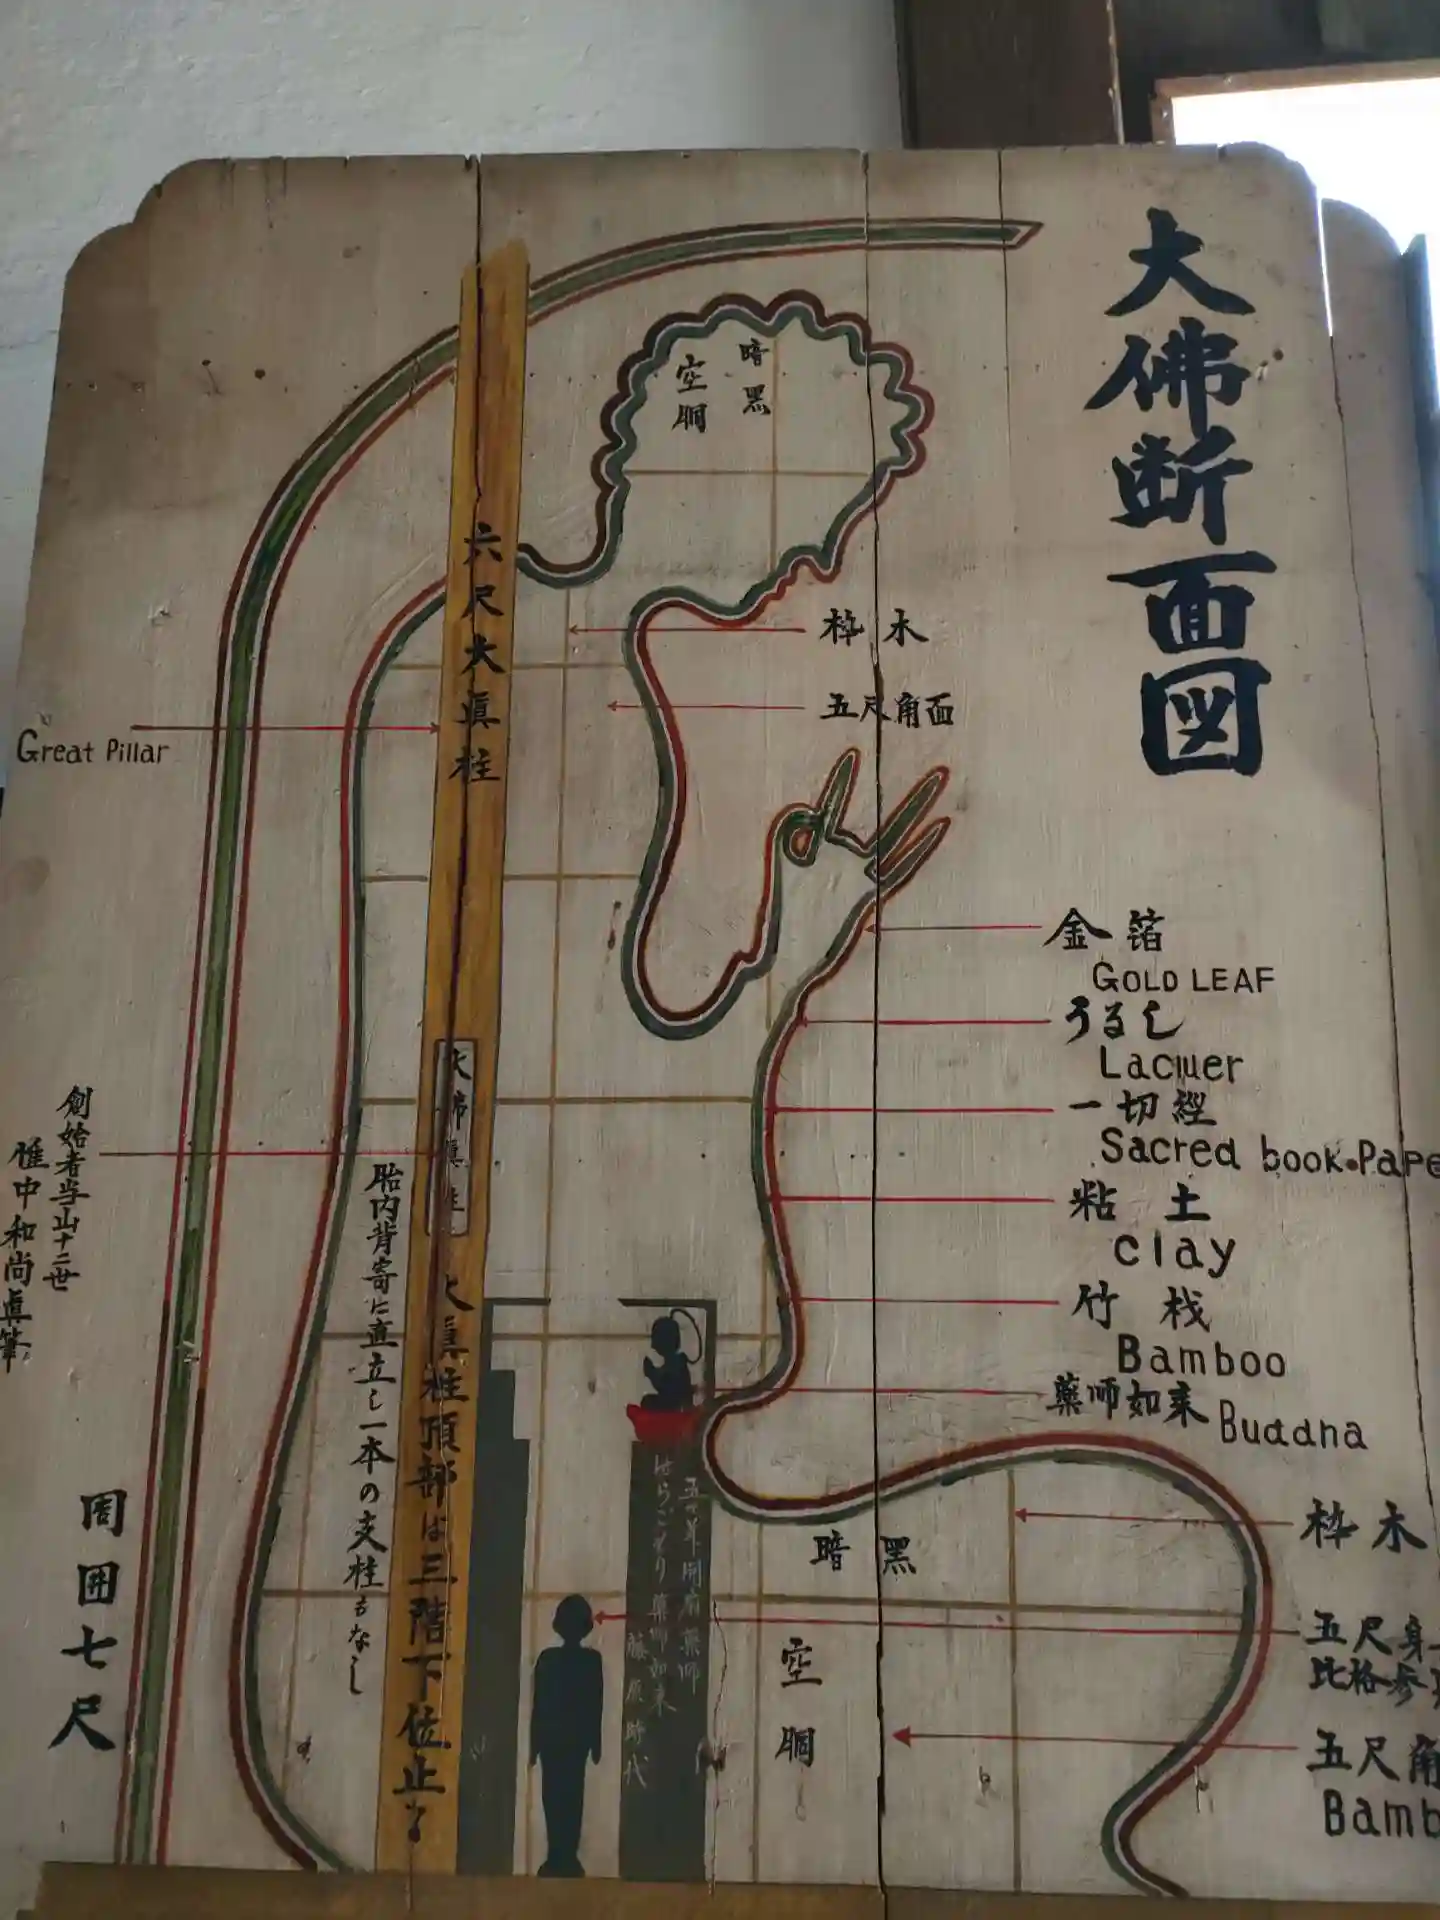 大佛断面図
暗黒
空胴
六尺大眞柱
枠木
五尺角面
Great Pillar
金箔
GOLD LEAF
うるし
Lacquer
一切經
Sacred book・Pape
粘土
clay
竹桟
Bamboo
薬师如来
Buddna
創始者当山十二世
惟中和尚眞筆
大佛眞柱
胎内背寄に直立し一本の支柱もなし
大眞柱頂部は三階下位止る
周囲七尺
はらごもり薬师如来
藤原時代
暗黒
空胴
枠木
五尺身
比格参
五尺角
Bamb